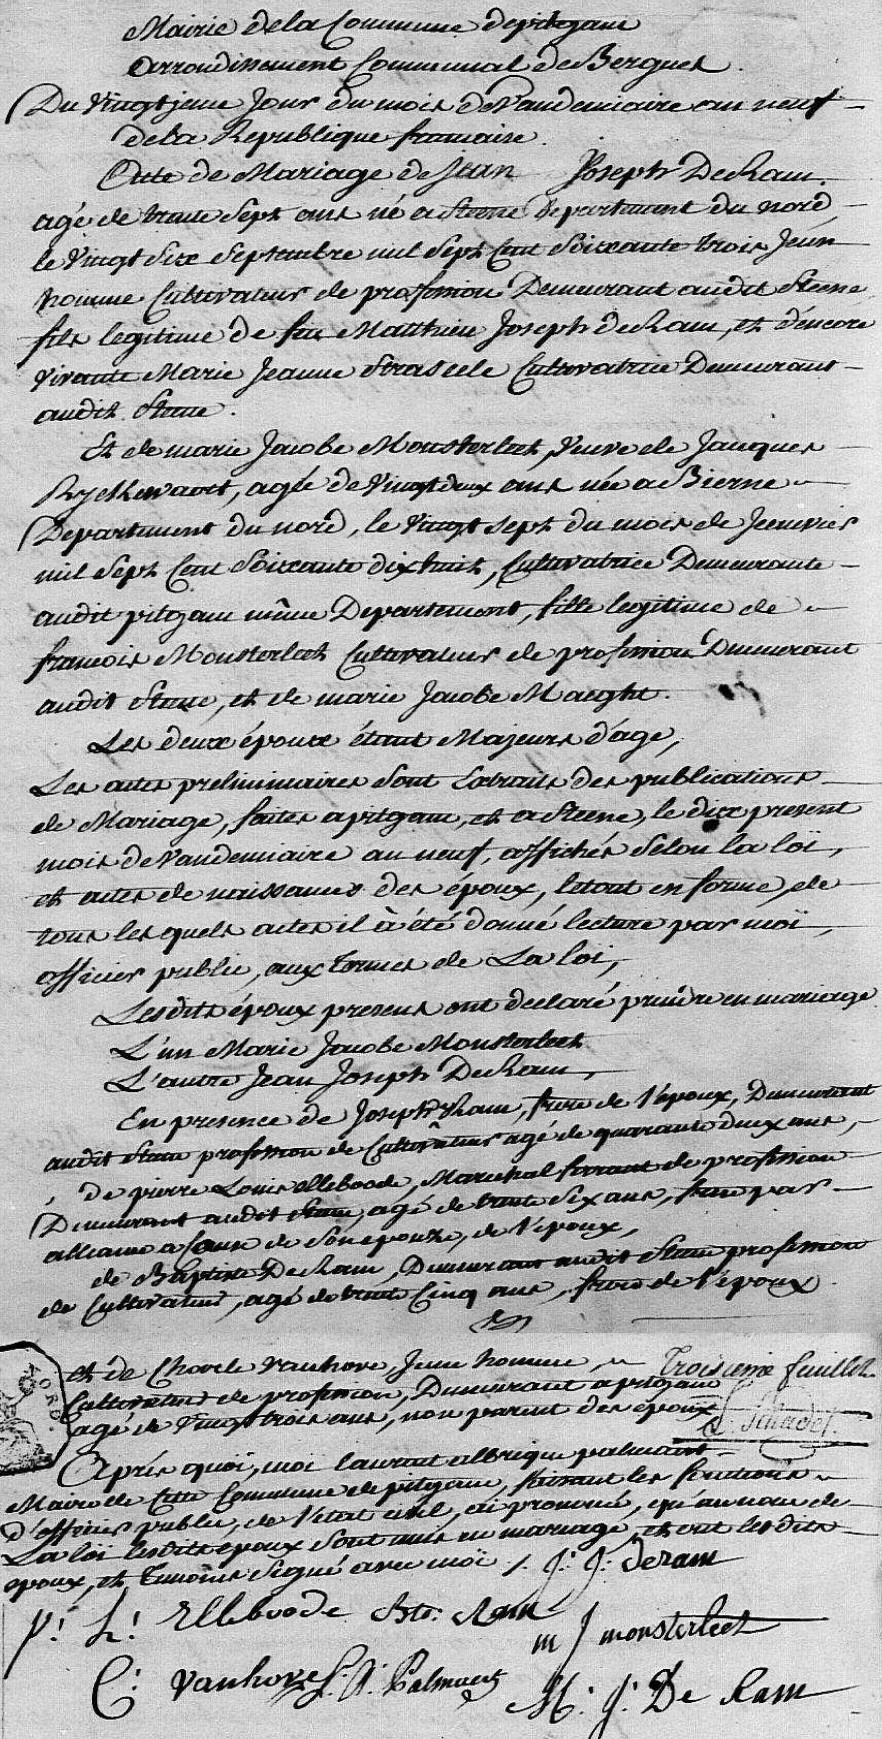 Mairie de la Commune de pitgam
arrondissement Communal de Bergues.
Du Vingtieme Jour du mois de Vandemiaire an neuf
de la Republique francaise.
Acte de Mariage de Jean Joseph De Ram.
agé de trente Sept ans né a Steene Departement du nord
le Vingt Six Septembre mil Sept Cent Soixante trois Jeun
homme Cultivateur de profession Demeurant audit Steene
fils legitime de feu Matthieu Joseph de Ram, et d'encore
vivante Marie Jeanne Straseele Cultivatrice Demeurant
audit Steene.
Et de marie Jacobe Monsterleet, Veuve de Jacques
Ryckewaert, agée de Vingt deux ans née a Bierne
Departement du nord, le Vingt sept du mois de Jeanvier
mil Sept Cent Soixante dix huit, Cultivatrice Demeurante
audit pitgam même Departement, fille legitime de
francois Monsterleet Cultivateur de profession Demeurant
audit Steene, et de marie Jacobe Maeght.
Les deux époux étant Majeurs d'age,
Les actes preliminaires Sont Extraits des publications
de Mariage, faites a pitgam, et a Steene, le dix present
mois de Vandemiaire an neuf, affichés Selon la loï,
et actes de naissances des époux, le tout en forme, de
tous les quels actes il à été donné lecture par moï
officier public, aux termes de La loi,
Les dits époux presens ont declaré prendre en mariage
L'un Marie Jacobe Monsterleet
L'autre Jean Joseph De Ram,
En presence de Joseph Ram, frere de l'époux, Demeurant
audit Steene profession de Cultivateur agé de quarante deux ans,
de pierre Louis Elleboode, Marechal ferrant de profession
Demeurant audit Steene, agé de trente Six ans, frere par
alliance a Cause de Son epouze, de l'époux,
de Baptiste De Ram, Demeurant audit Steene profession
de Cultivateur, agé de trente Cinq ans, frere de l'époux
et de Charle Vanhove, Jeune homme, Troisieme feuillet.
NORD.
Cultivateur de profession, Demeurant a pitgam
agé de Vingt trois ans, non parent des époux
Après quoï, moi laurent albrique palmaert
Maire de Cette Commune de pitgam, faisant les fonctions
d'officier public, de l'état civil, ai prononcé, qu'au nom de
La loï les dits époux Sont unis en mariage, et ont les dits
époux, et temoins Signé avec moï. J: J: deram
p: L: Elleboode Bte: Ram
m J monsterleet
C: vanhove L: A: Palmaert
M: J: De Ram